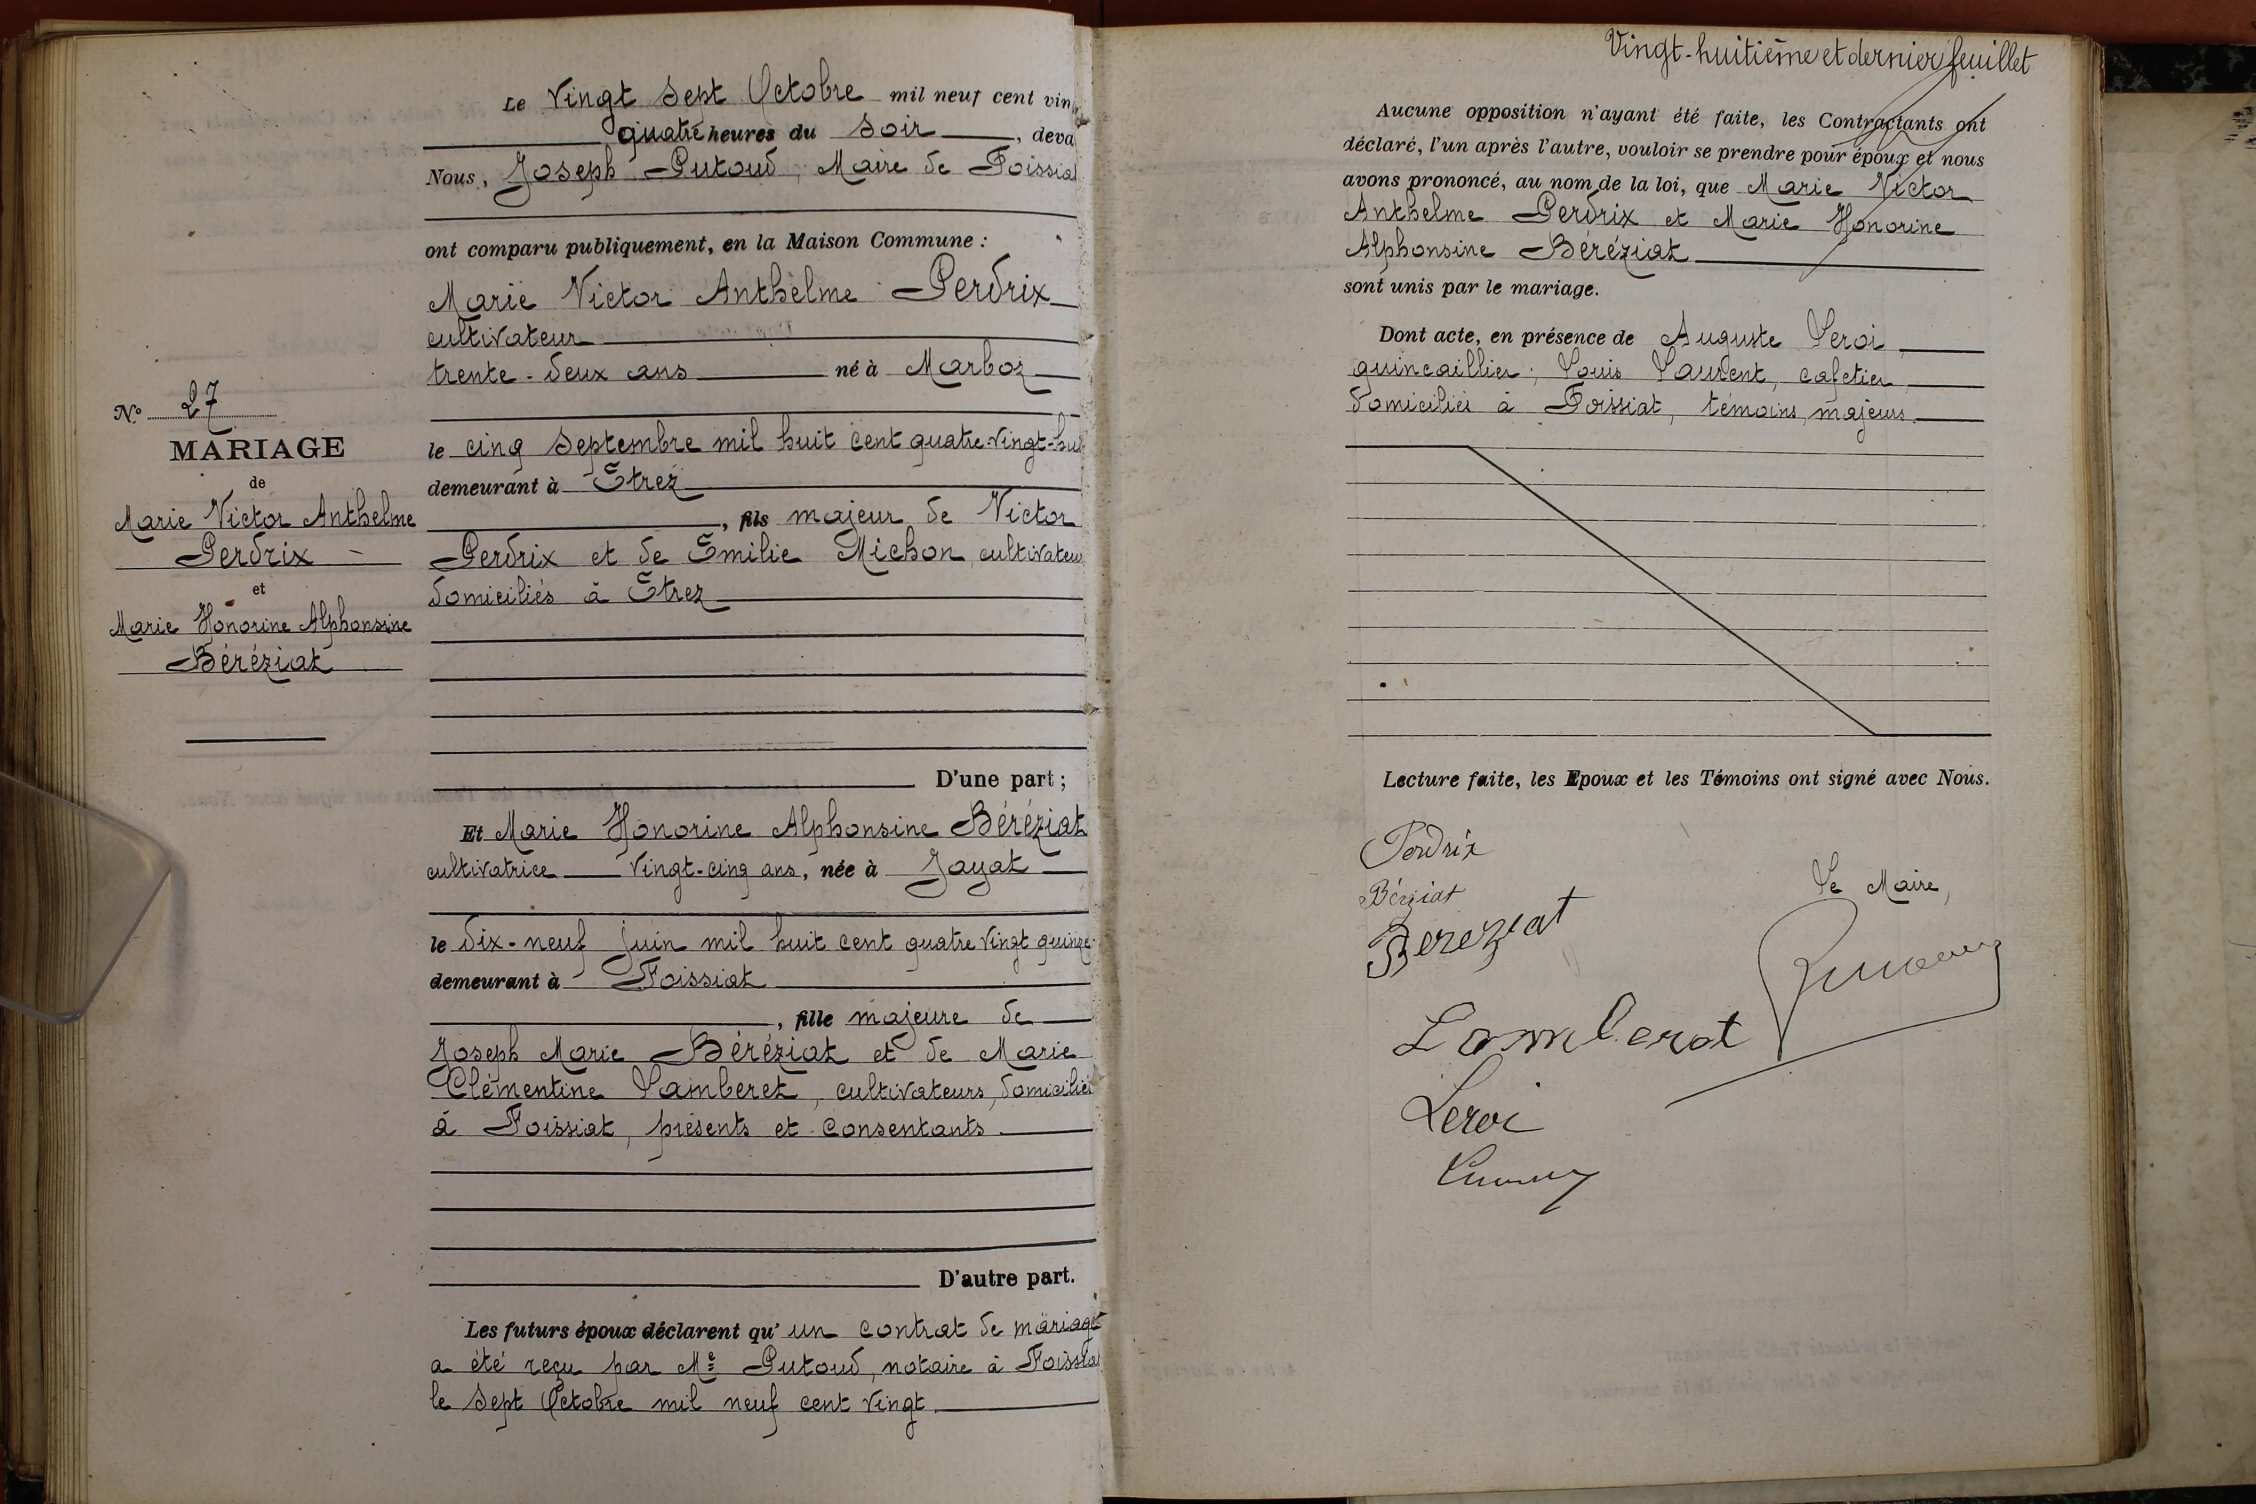 Le Vingt Sept Octobre mil neuf cent vin
quatre heures du Soir, deva
Nous, Joseph Putoud, Maire de Foissia
ont comparu publiquement, en la Maison Commune :
Marie Victor Anthelme Perdrix
cultivateur
trente-deux ans né à Marboz
le cinq Septembre mil huit cent quatre-vingt-hui
demeurant à Etrez
, fils majeur de Victor
Perdrix et de Emilie Michon, cultivateurs
domiciliés à Etrez
D'une part ;
Et Marie Honorine Alphonsine Béréziat
cultivatrice Vingt-cinq ans, née à Jayat
le dix-neuf juin mil huit cent quatre Vingt quinze
demeurant à Foissiat
, fille majeure de
Joseph Marie Béréziat et de Marie
Clémentine Lamberet, cultivateurs, domiciliés
à Foissiat, présents et consentants
D'autre part.
Les futurs époux déclarent qu' un contrat de mariage
a été reçu par Me Putoud, notaire à Foissia
le Sept Octobre mil neuf cent Vingt
No 27
MARIAGE
de
Marie Victor Anthelme
Perdrix
et
Marie Honorine Alphonsine
Béréziat
Vingt-huitième et dernier feuillet
Aucune opposition n'ayant été faite, les Contractants ont
déclaré, l'un après l'autre, vouloir se prendre pour époux et nous
avons prononcé, au nom de la loi, que Marie Victor
Anthelme Perdrix et Marie Honorine
Alphonsine Béréziat
sont unis par le mariage.
Dont acte, en présence de Auguste Leroi,
quincaillier ; Louis Laurent, cafetier,
domiciliés à Foissiat, témoins, majeurs.
Lecture faite, les Epoux et les Témoins ont signé avec Nous.
Perdrix
Béréziat
Bereziat
Le Maire,
Lamberet
Leroi